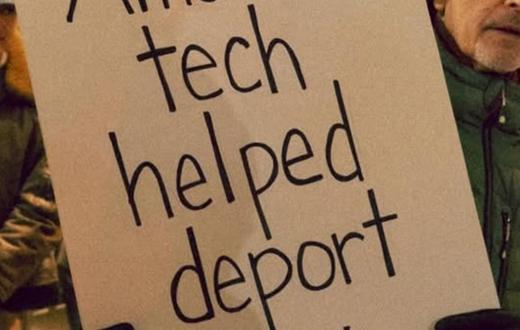 tech
helped
deport